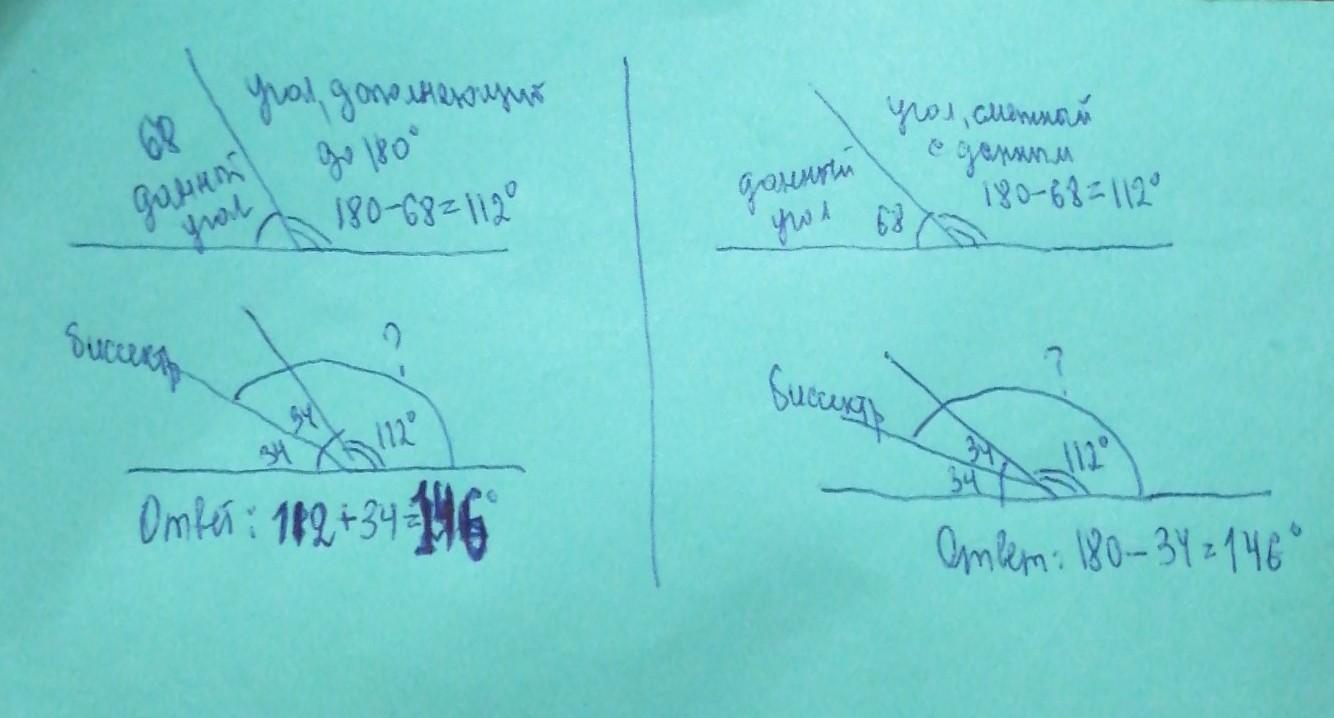 68
данный
угол
угол, дополняющий
до 180°
180-68=112°
биссектр
34
34
112°
?
Ответ: 112+34=146°
данный
угол
68
угол, смежный
с данным
180-68=112°
биссектр
34
34
112°
?
Ответ: 180-34=146°